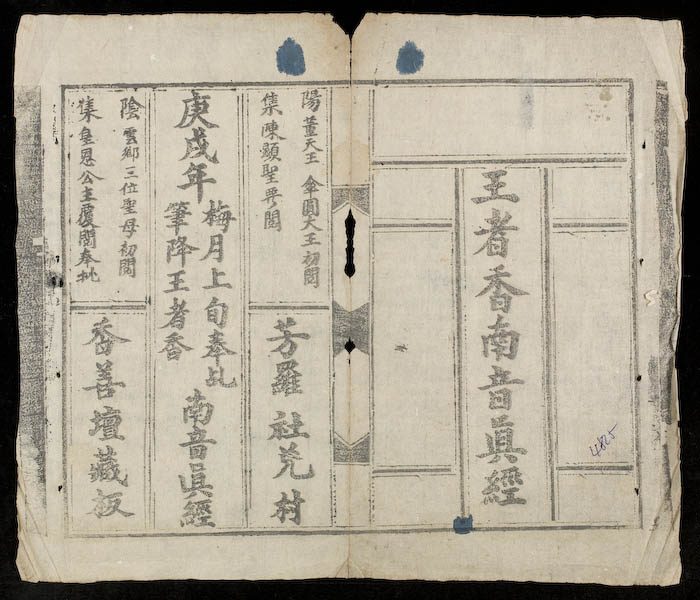 王者香南音眞經
陽 董天王 傘圓大王初閲
集 陳顯聖再閲
芳羅社芫村
庚戌年
梅月上旬奉乩
筆降王者香
南音眞經
陰 雲鄉三位聖母初閲
集 皇恩公主覆閲奉批
香善壇藏板